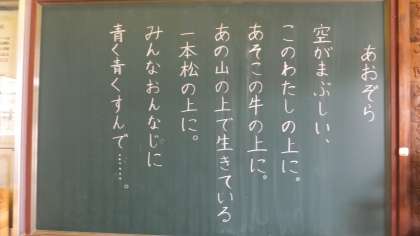 あおぞら
空がまぶしい、
このわたしの上に。
あそこの牛の上に。
あの山の上で生きている
一本松の上に。
みんなおんなじに
青く青くすんで……。